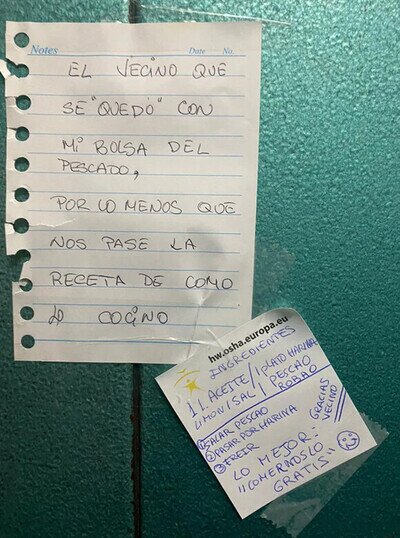 Notes Date No.
EL VECINO QUE
SE "QUEDÓ" CON
MI BOLSA DEL
PESCADO,
POR LO MENOS QUE
NOS PASE LA
RECETA DE COMO
LO COCINO
hw.osha.europa.eu
INGREDIENTES
1 L ACEITE/1 PLATO HARINA
LIMON/SAL/1 PESCAO
ROBAO
① SALAR PESCAO
② PASAR POR HARINA
③ FREIR
GRACIAS
VECINO
LO MEJOR:
"COMERNOSLO
GRATIS"